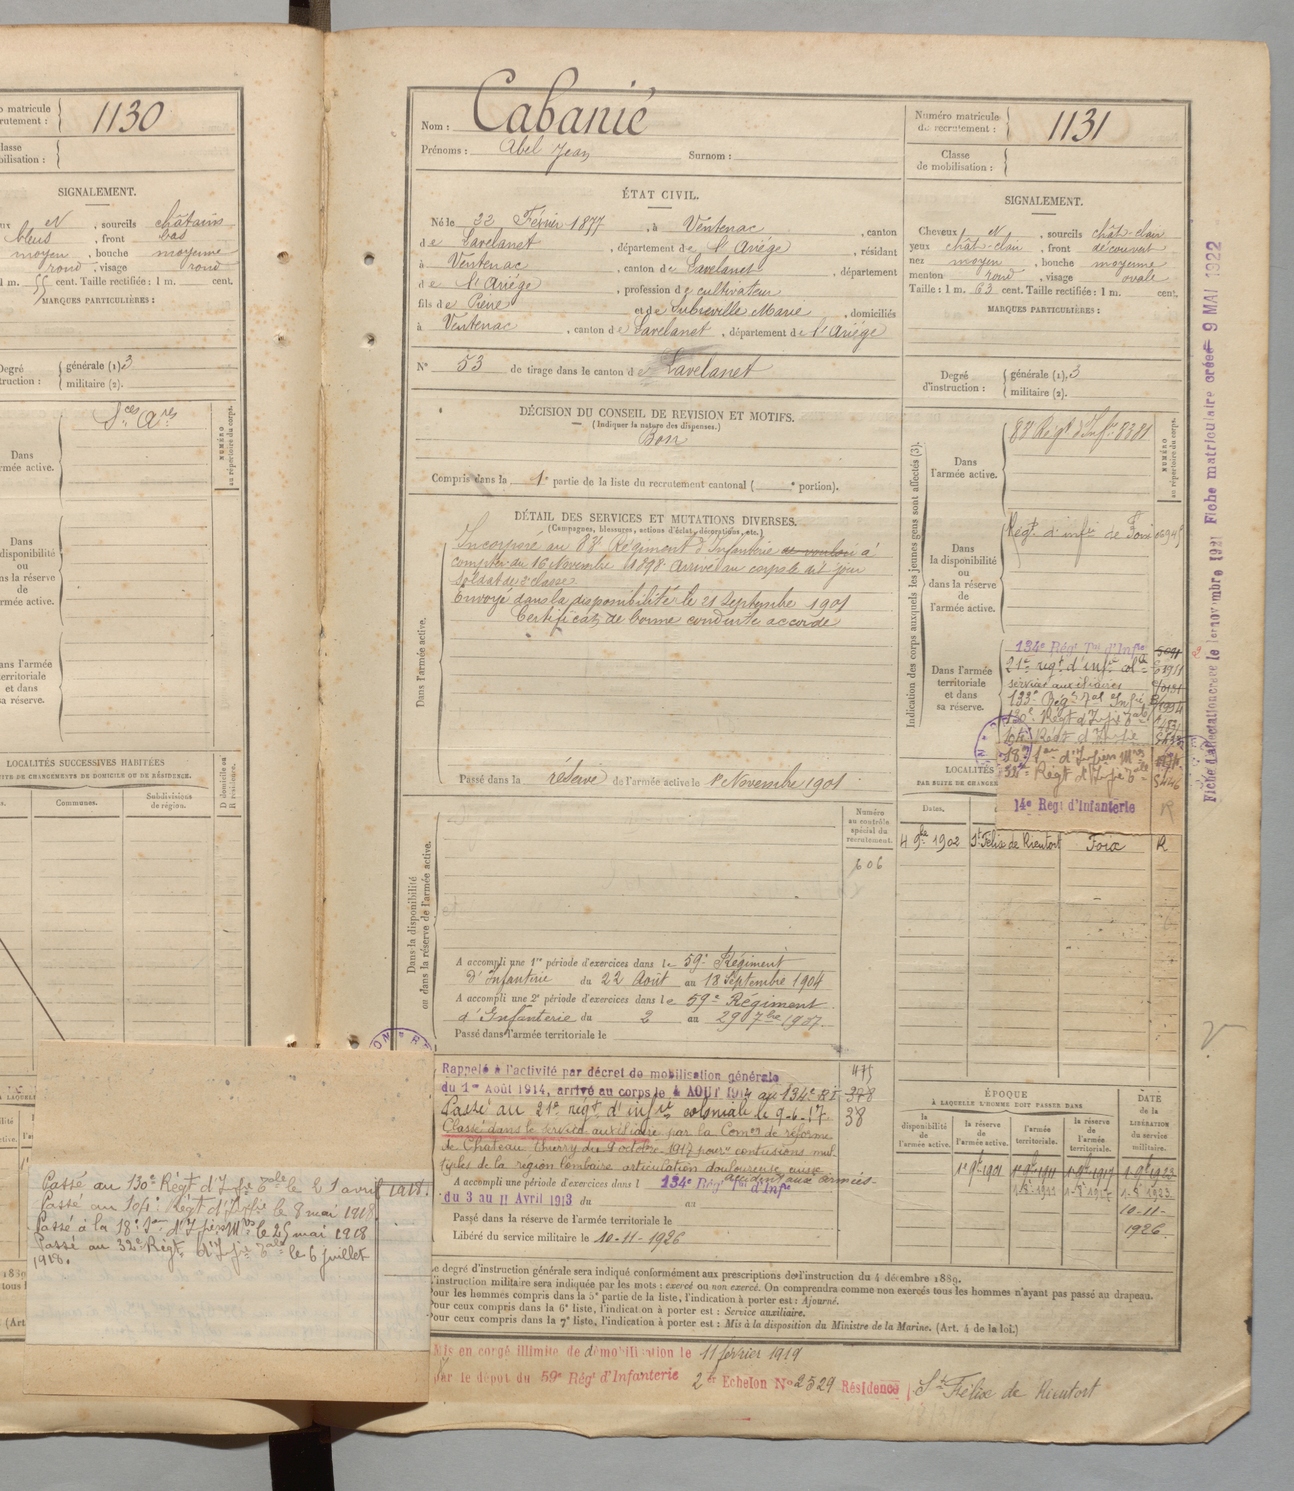 o matricule
rutement :
1130
lasse
bilisation :
SIGNALEMENT.
ux N , sourcils châtains
bleus , front bas
moyen , bouche moyenne
rond , visage rond
1 m. 55 cent. Taille rectifiée : 1 m. cent.
MARQUES PARTICULIÈRES :
Degré
truction :
générale (1). 3
militaire (2).
NUMÉRO
au répertoire du corps.
Dans
armée active.
Dans
disponibilité
ou
dans la réserve
de
rmée active.
ans l'armée
territoriale
et dans
sa réserve.
LOCALITÉS SUCCESSIVES HABITÉES
SUITE DE CHANGEMENTS DE DOMICILE OU DE RÉSIDENCE.
Communes.
Subdivisions
de région.
D domicile ou
R résidence.
Passé au 130e Régt d'Infie Tale le 21 avril 1918.
Passé au 104e Régt d'Infie le 8 mai 1918
Passé à la 18e Son d'Infiers Mres le 25 mai 1918
Passé au 32e Régt d'Infie Tale le 6 juillet
1918.
Nom : Cabanié
Prénoms : Abel Jean Surnom :
Numéro matricule
du recrutement :
1131
Classe
de mobilisation :
ÉTAT CIVIL.
Né le 22 Février 1877 , à Ventenac , canton
de Lavelanet , département de l'Ariége , résidant
à Ventenac , canton de Lavelanet , département
de l'Ariége , profession de cultivateur
fils de Pierre et de Subreville Marie , domiciliés
à Ventenac , canton de Lavelanet , département de l'Ariége
N° 53 de tirage dans le canton de Lavelanet
DÉCISION DU CONSEIL DE REVISION ET MOTIFS.
(Indiquer la nature des dispenses.)
Bon
Compris dans la 1e partie de la liste du recrutement cantonal ( e portion).
DÉTAIL DES SERVICES ET MUTATIONS DIVERSES.
(Campagnes, blessures, actions d'éclat, décorations, etc.)
Dans l'armée active.
Incorporé au 83e Régiment d'Infanterie à
compter du 16 Novembre 1898 Arrivé au corps le dit jour
Soldat de 2e classe
Envoyé dans la disponibilité le 21 Septembre 1901
Certificat de bonne conduite accordé
Passé dans la réserve de l'armée active le 1er Novembre 1901
Numéro
au contrôle
spécial du
recrutement.
606
Dans la disponibilité
ou dans la réserve de l'armée active.
A accompli une 1re période d'exercices dans le 59e Régiment
d'Infanterie du 22 Août au 18 Septembre 1904
A accompli une 2e période d'exercices dans le 59e Régiment
d'Infanterie du 2 au 29 7bre 1907.
Passé dans l'armée territoriale le
Rappelé à l'activité par décret de mobilisation générale
du 1er Août 1914, arrivé au corps le 4 AOUT 1914 au 134e RI
475
378
Passé au 21e régt d'infie coloniale le 9-6-17
38
Classé dans le service auxiliaire par la Comon de réforme
de Chateau Thierry du 1 octobre 1917 pour contusions mul
tiples de la région lombaire articulation douloureuse cuisse
accident aux armées-
A accompli une période d'exercices dans l 134e Régt Tal d'Infie
du 3 au 11 Avril 1913 du au
Passé dans la réserve de l'armée territoriale le
Libéré du service militaire le 10-11-1926
SIGNALEMENT.
Cheveux N , sourcils chât-clair
yeux chât-clair , front découvert
nez moyen , bouche moyenne
menton rond , visage ovale
Taille : 1 m. 63 cent. Taille rectifiée : 1 m. cent.
MARQUES PARTICULIÈRES :
Degré
d'instruction :
générale (1). 3
militaire (2).
Indication des corps auxquels les jeunes gens sont affectés (3).
NUMÉRO
au répertoire du corps.
Dans
l'armée active.
83 Régt d'Infie 8381
Dans
la disponibilité
ou
dans la réserve
de
l'armée active.
Régt d'infie de Foix
Dans l'armée
territoriale
et dans
sa réserve.
134e Régt Tal d'Infie
21e regt d'infie colle
service auxiliaires
133e Régt Tal Infie
130e Régt d'Infie Tale
104e Régt d'Infie
18e Son d'Infiers Mres
32e Régt d'Infie Tale
14e Regt d'Infanterie
R
LOCALITÉS
PAR SUITE DE CHANGE
Dates.
4 9bre 1902 St Félix de Rieutort Foix R
ÉPOQUE
À LAQUELLE L'HOMME DOIT PASSER DANS
DATE
de la
LIBÉRATION
du service
militaire.
la
disponibilité
de
l'armée active.
la réserve
de
l'armée active.
l'armée
territoriale.
la réserve
de
l'armée
territoriale.
1er 9bre 1901
10-11-
1926
Fiche d'affectation créée le 1er novembre 1921 Fiche matriculaire créée 9 MAI 1922
Le degré d'instruction générale sera indiqué conformément aux prescriptions de l'instruction du 4 décembre 1889.
L'instruction militaire sera indiquée par les mots : exercé ou non exercé. On comprendra comme non exercés tous les hommes n'ayant pas passé au drapeau.
Pour les hommes compris dans la 5e partie de la liste, l'indication à porter est : Ajourné.
Pour ceux compris dans la 6e liste, l'indication à porter est : Service auxiliaire.
Pour ceux compris dans la 7e liste, l'indication à porter est : Mis à la disposition du Ministre de la Marine. (Art. 4 de la loi.)
Mis en congé illimité de démobilisation le 11 février 1919
par le dépot du 59e Régt d'Infanterie 2e Echelon N° 2529 Résidence St Félix de Rieutort